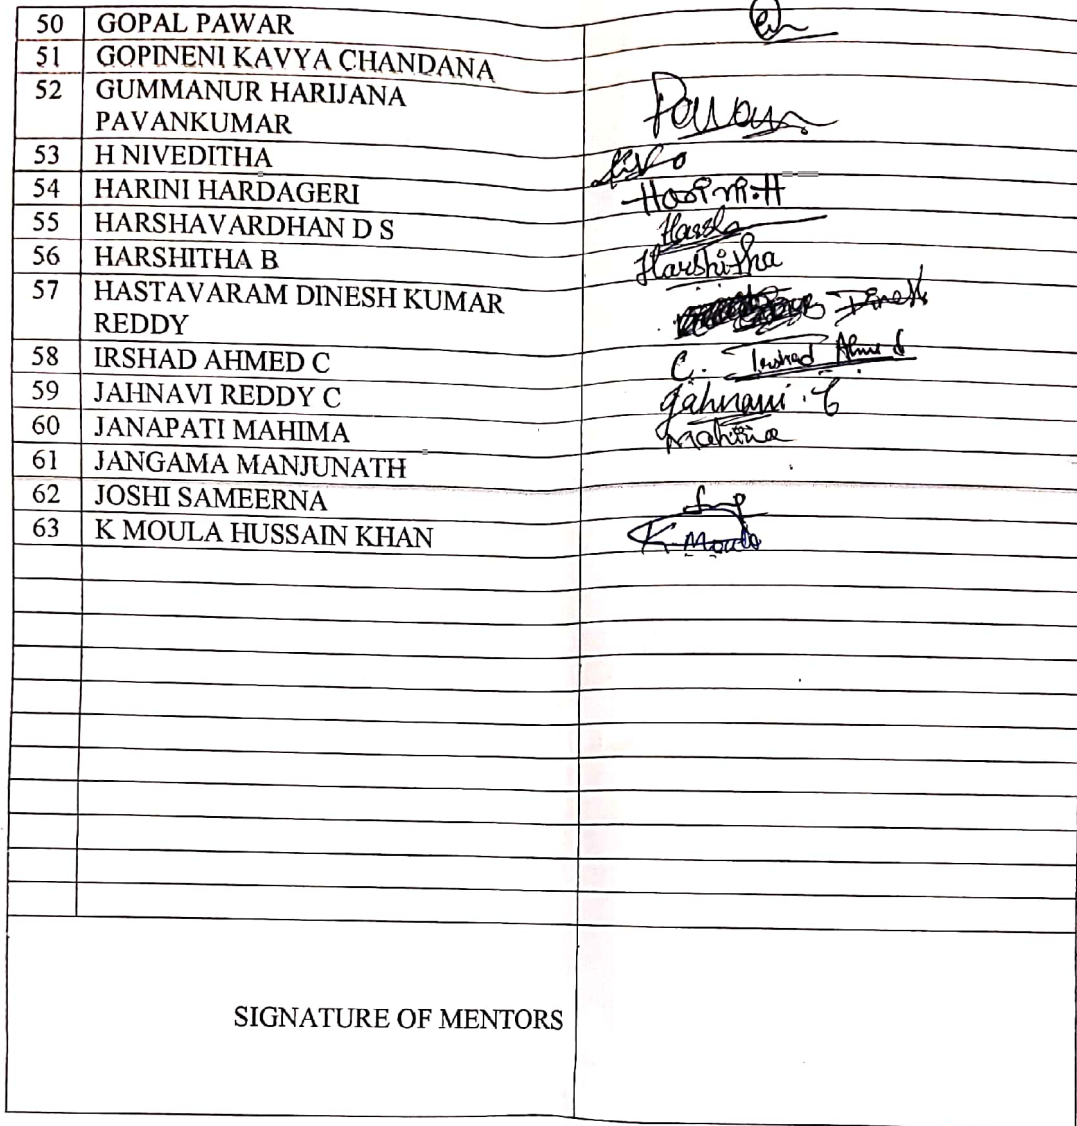 50 GOPAL PAWAR
51 GOPINENI KAVYA CHANDANA
52 GUMMANUR HARIJANA
PAVANKUMAR Pavan
53 H NIVEDITHA
54 HARINI HARDAGERI Harini.H
55 HARSHAVARDHAN D S Harsha
56 HARSHITHA B Harshitha
57 HASTAVARAM DINESH KUMAR
REDDY Dinesh
58 IRSHAD AHMED C C. Irshad Ahmed
59 JAHNAVI REDDY C Jahnavi.C
60 JANAPATI MAHIMA Mahima
61 JANGAMA MANJUNATH
62 JOSHI SAMEERNA
63 K MOULA HUSSAIN KHAN K. Moula
SIGNATURE OF MENTORS